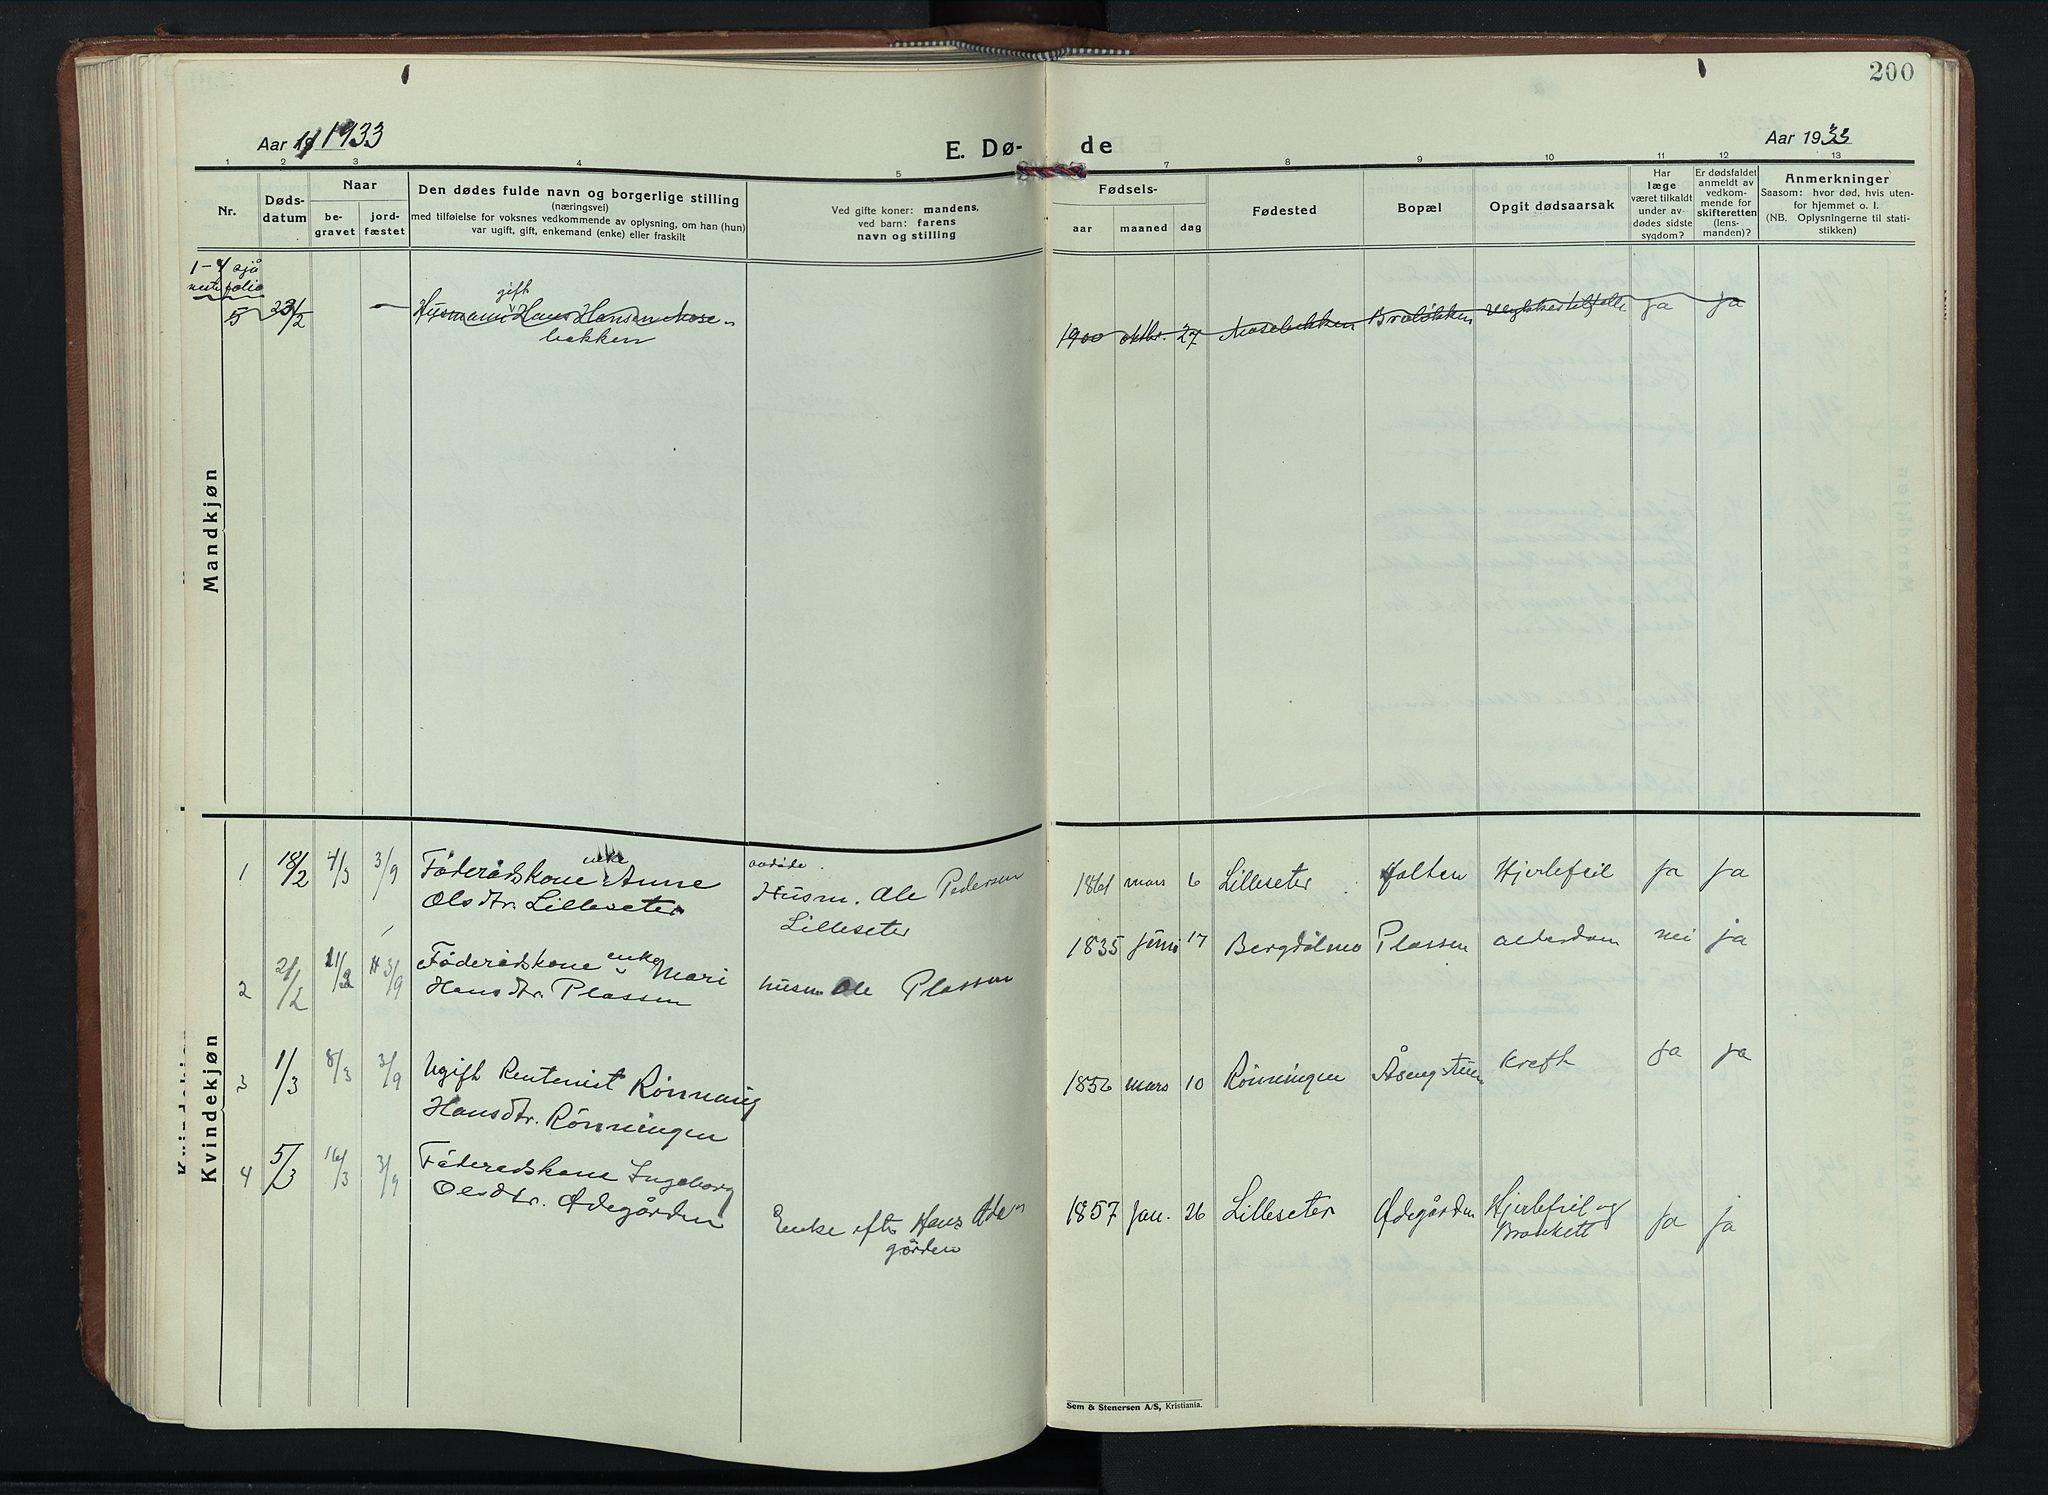 200
Aar 19 1933
E. Dø-
de
Aar 1933
1 2 3 4 5 7 8 9 10 11 12 13
Nr.
Døds-
datum
Naar
be-
gravet
jord-
fæstet
Den dødes fulde navn og borgerlige stilling
(næringsvei)
med tilføielse for voksnes vedkommende av oplysning, om han (hun)
var ugift, gift, enkemand (enke) eller fraskilt
Ved gifte koner: mandens,
ved barn: farens
navn og stilling
Fødsels-
aar maaned dag
Fødested
Bopæl
Opgit dødsaarsak
Har
læge
været tilkaldt
under av-
dødes sidste
sygdom?
Er dødsfaldet
anmeldt av
vedkom-
mende for
skifteretten
(lens-
manden)?
Anmerkninger
Saasom: hvor død, hvis uten-
for hjemmet o. l.
(NB. Oplysningerne til stati-
stikken)
Mandkjøn
1-4 sjå
neste folio
gift
5 23/2 Husmann Hans Hansen Mose-
bekken
1900 oktbr. 27 Mosebekken Braløkken ulykkestilfelle ja ja
Kvindekjøn
enke
1 18/2 4/3 3/9 Föderådskone Anne
Olsdtr. Lilleseter
avdöde
Husm. Ole Pedersen
Lilleseter
1861 mars 6 Lilleseter Holten Hjertefeil ja ja
enke
2 21/2 11/3 3/9 Föderådskone Mari
Hansdtr. Plassen
husm Ole Plassen
1835 juni 17 Bergdølmo Plassen alderdom nei ja
3 1/3 8/3 3/9 Ugift Rentenist Rønnaug
Hansdtr. Rønningen
1856 mars 10 Rønningen Åsengstuen kreft ja ja
4 5/3 16/3 3/9 Föderadskone Ingeborg
Olsdtr. Ødegården
Enke efter Hans Øde-
gården
1857 jan. 26 Lilleseter Ødegården Hjertefeil og
Bronkitt ja ja
Sem & Stenersen A/S, Kristiania.